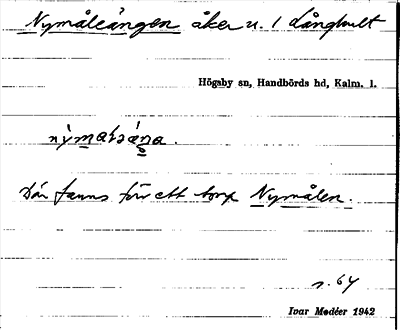 Nymåleängen åker u. 1 Långhult
Högsby sn, Handbörds hd, Kalm. l.
Där fanns förr ett torp Nymålen.
s. 64
Ivar Modéer 1942